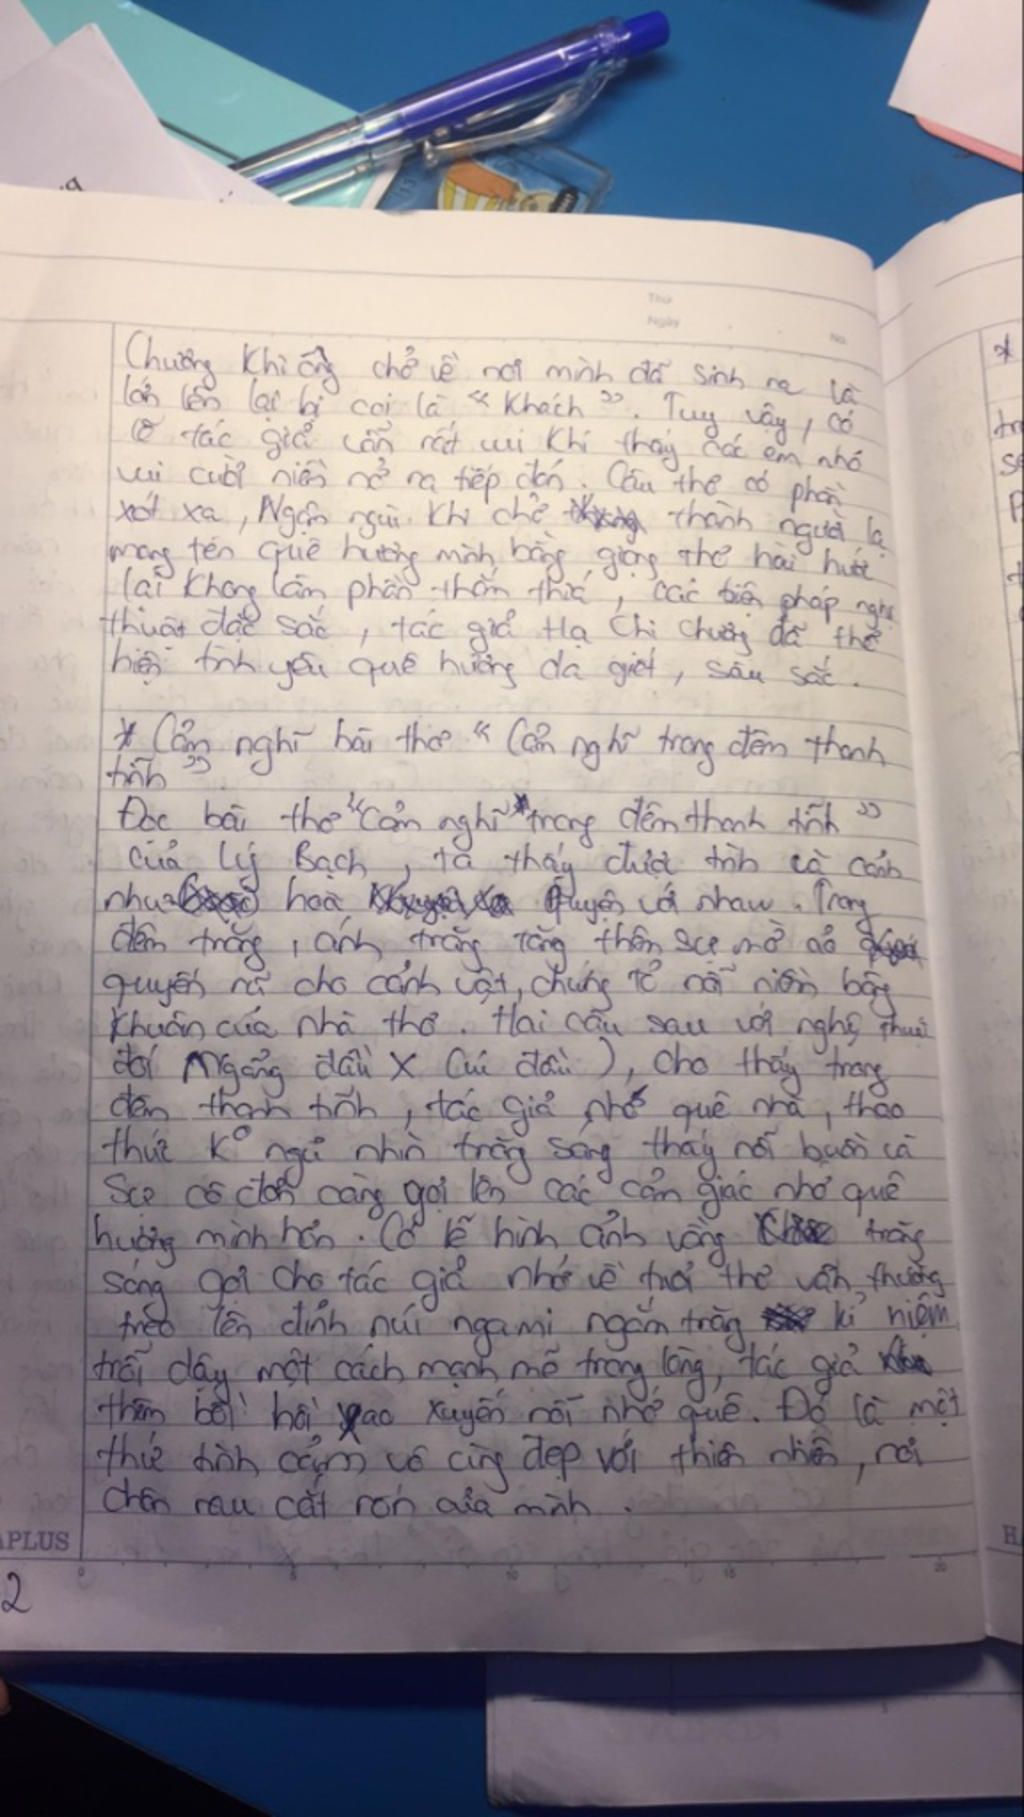 Thứ
Ngày
No.
Chương khi ông chở về nơi mình đã sinh ra và
lớn lên lại bị coi là “ Khách ”. Tuy vậy, có
lẽ tác giả vẫn rất vui khi thấy các em nhỏ
vui cười niềm nở ra tiếp đón. Câu thơ có phần
xót xa, Ngậm ngùi khi chở thành người lạ
mang tên quê hương mình bằng giọng thơ hài hước
lại không lầm phần thấm thía, các biện pháp nghệ
thuật đặc sắc, tác giả Hạ Chi Chương đã thể
hiện tình yêu quê hương da giết, sâu sắc.
* Cảm nghĩ bài thơ “ Cảm nghĩ trong đêm thanh
tĩnh ”
Đọc bài thơ “ Cảm nghĩ trong đêm thanh tĩnh ”
của Lý Bạch, ta thấy được tình và cảnh
như hoà Quyện với nhau. Trong
đêm trăng, ánh trăng tăng thêm sự mờ ảo
quyến rũ cho cảnh vật, chứng tỏ nỗi niềm bâng
khuâng của nhà thơ. Hai câu sau với nghệ thuật
đối Ngẩng đầu X Cúi đầu ), cho thấy trong
đêm thanh tĩnh, tác giả nhớ quê nhà, thao
thức k° ngủ nhìn trăng sáng thấy nỗi buồn và
sự cô đơn càng gợi lên các cảm giác nhớ quê
hương mình hơn. Có lẽ hình ảnh vầng trăng
sáng gợi cho tác giả nhớ về tuổi thơ vẫn thường
trèo lên đỉnh núi ngami ngắm trăng kỉ niệm
trỗi dậy một cách mạnh mẽ trong lòng, tác giả
thêm bồi hồi xao xuyến nỗi nhớ quê. Đó là một
thứ tình cảm vô cùng đẹp với thiên nhiên, nơi
chôn rau cắt rốn của mình.
APLUS
0 5 10 15 20
2